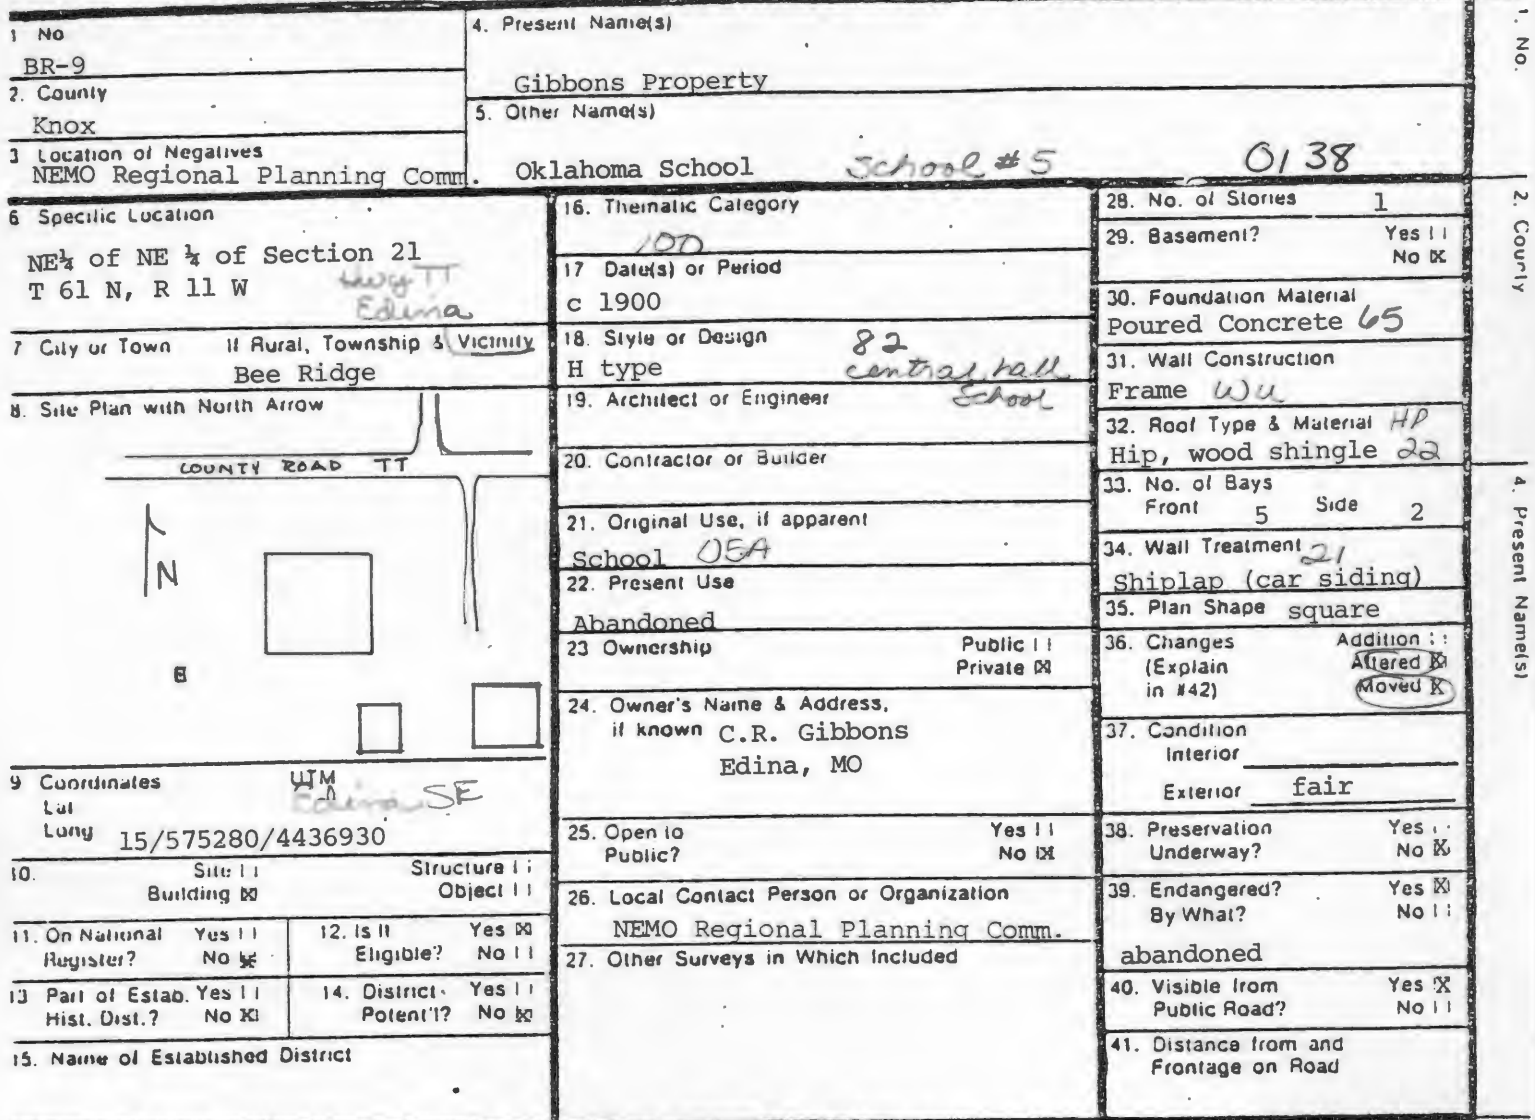 1 No
BR-9
2. County
Knox
3 Location of Negatives
NEMO Regional Planning Comm.
4. Present Name(s)
Gibbons Property
5. Other Name(s)
Oklahoma School School #5 0138
6 Specific Location
NE¼ of NE ¼ of Section 21
T 61 N, R 11 W
Hwy TT
Edina
7 City or Town If Rural, Township & Vicinity
Bee Ridge
8. Site Plan with North Arrow
COUNTY ROAD TT
N
9 Coordinates UTM
Lat
Long
Edina SE
15/575280/4436930
10. Site [ ] Structure [ ]
Building [X] Object [ ]
11. On National Register? Yes [ ] No [X]
12. Is It Eligible? Yes [X] No [ ]
13 Part of Estab. Hist. Dist.? Yes [ ] No [X]
14. District Potent'l? Yes [ ] No [X]
15. Name of Established District
16. Thematic Category
100
17 Date(s) or Period
c 1900
18. Style or Design 82
H type central hall School
19. Architect or Engineer
20. Contractor or Builder
21. Original Use, if apparent
School
22. Present Use
Abandoned
23 Ownership Public [ ]
Private [X]
24. Owner's Name & Address,
if known C.R. Gibbons
Edina, MO
25. Open to Public? Yes [ ] No [X]
26. Local Contact Person or Organization
NEMO Regional Planning Comm.
27. Other Surveys in Which Included
28. No. of Stories 1
29. Basement? Yes [ ]
No [X]
30. Foundation Material
Poured Concrete 65
31. Wall Construction
Frame WU
32. Roof Type & Material HP
Hip, wood shingle 22
33. No. of Bays
Front 5 Side 2
34. Wall Treatment 21
Shiplap (car siding)
35. Plan Shape square
36. Changes Addition [ ]
(Explain Altered [X]
in #42) Moved X
37. Condition
Interior
Exterior fair
38. Preservation Yes [ ]
Underway? No [X]
39. Endangered? Yes [X]
By What? No [ ]
abandoned
40. Visible from Yes [X]
Public Road? No [ ]
41. Distance from and
Frontage on Road
1. No.
2. County
4. Present Name(s)